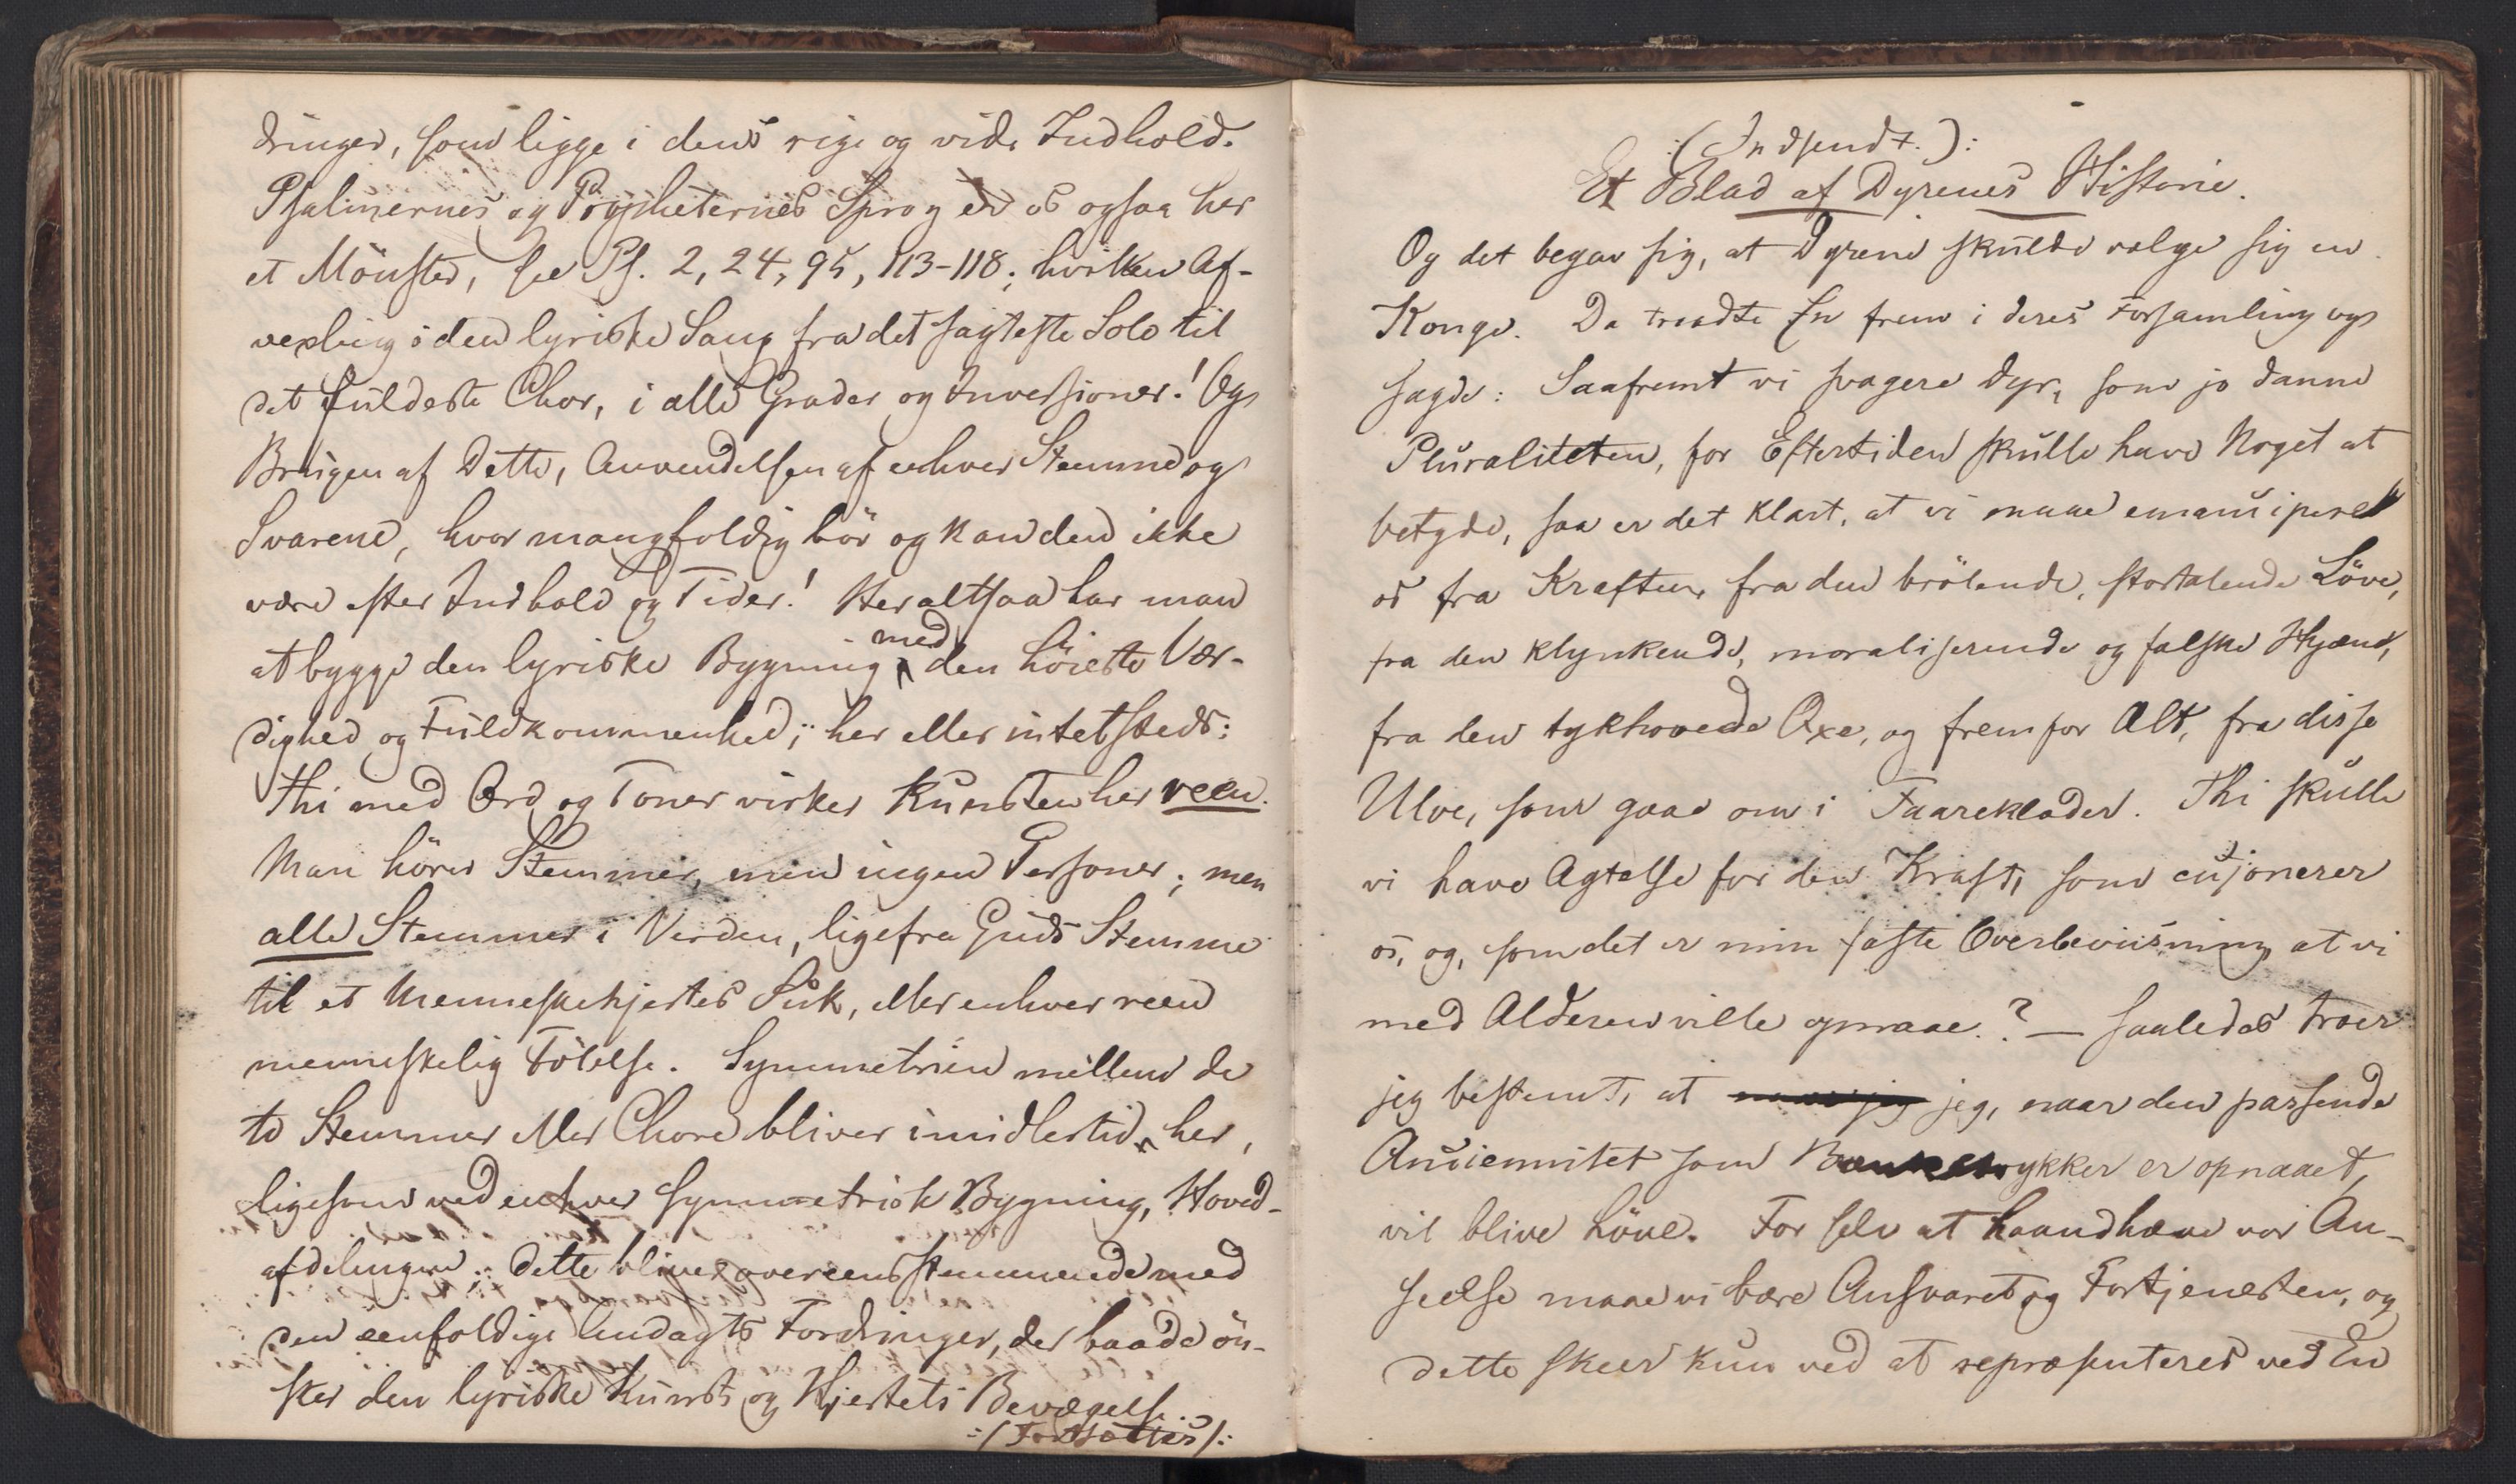 dringer, som ligge i dens rige og vide Indhold.
Psalmernes og Propheternes Sprog er os ogsaa her
et Mönster, see Ps. 2, 24, 95, 113-118; hvilken Af-
vexling i den lyriske Sang fra det sagteste Solo til
det fuldeste Chor, i alle Grader og Inversioner! Og
Brugen af Dette, Anvendelsen af enhver Stemme og
Svarene, hvor mangfoldig bör og kan den ikke
være efter Indhold og Tider! Her altsaa har man
at bygge den lyriske Bygning med den höieste Vær-
dighed og Fuldkommenhed; her eller intetsteds:
Thi med Ord og Toner virker Kunsten her reen.
Man hörer Stemmer, men ingen Personer; men
alle Stemmer i Verden, ligefra Guds Stemme
til et Menneskehjertes Suk, eller enhver reen
menneskelig Fölelse. Symmetrien mellem de
to Stemmer eller Chore bliver imidlertid her,
ligesom ved enhver symmetrisk Bygning, Hoved-
afdelingen; dette bliver overeensstemmende med
den eenfoldige Andagts Fordringer, der baade ön-
sker den lyriske Kunsts og Hjertets Bevægelse.
:(Fortsættes):
:(Indsendt.):
Et Blad af Dyrenes Historie.
Og det begav sig, at Dyrene skulde vælge sig en
Konge. Da traadte En frem i deres Forsamling og
sagde: Saafremt vi svagere Dyr, som jo danne
Pluraliteten, for Eftertiden skulle have Noget at
betyde, saa er det klart, at vi maae emancipere
os fra Kraften, fra den brölende, stortalende Löve,
fra den klynkende, moraliserende og falske Hyæne,
fra den tykhovede Oxe, og fremfor Alt, fra disse
Ulve, som gaae om i Faareklæder. Thi skulle
vi have Agtelse for den Kraft, som cujonerer
os, og, som det er min faste Overbeviisning at vi
med Alderen ville opnaae? — Saaledes troer
jeg bestemt, at jeg, naar den passende
Anciennitet som er opnaaet,
vil blive Löve. For selv at haandhæve vor An-
seelse maae vi bære Ansvaret og Fortjenesten, og
dette skeer kun ved at repræsenteres ved En